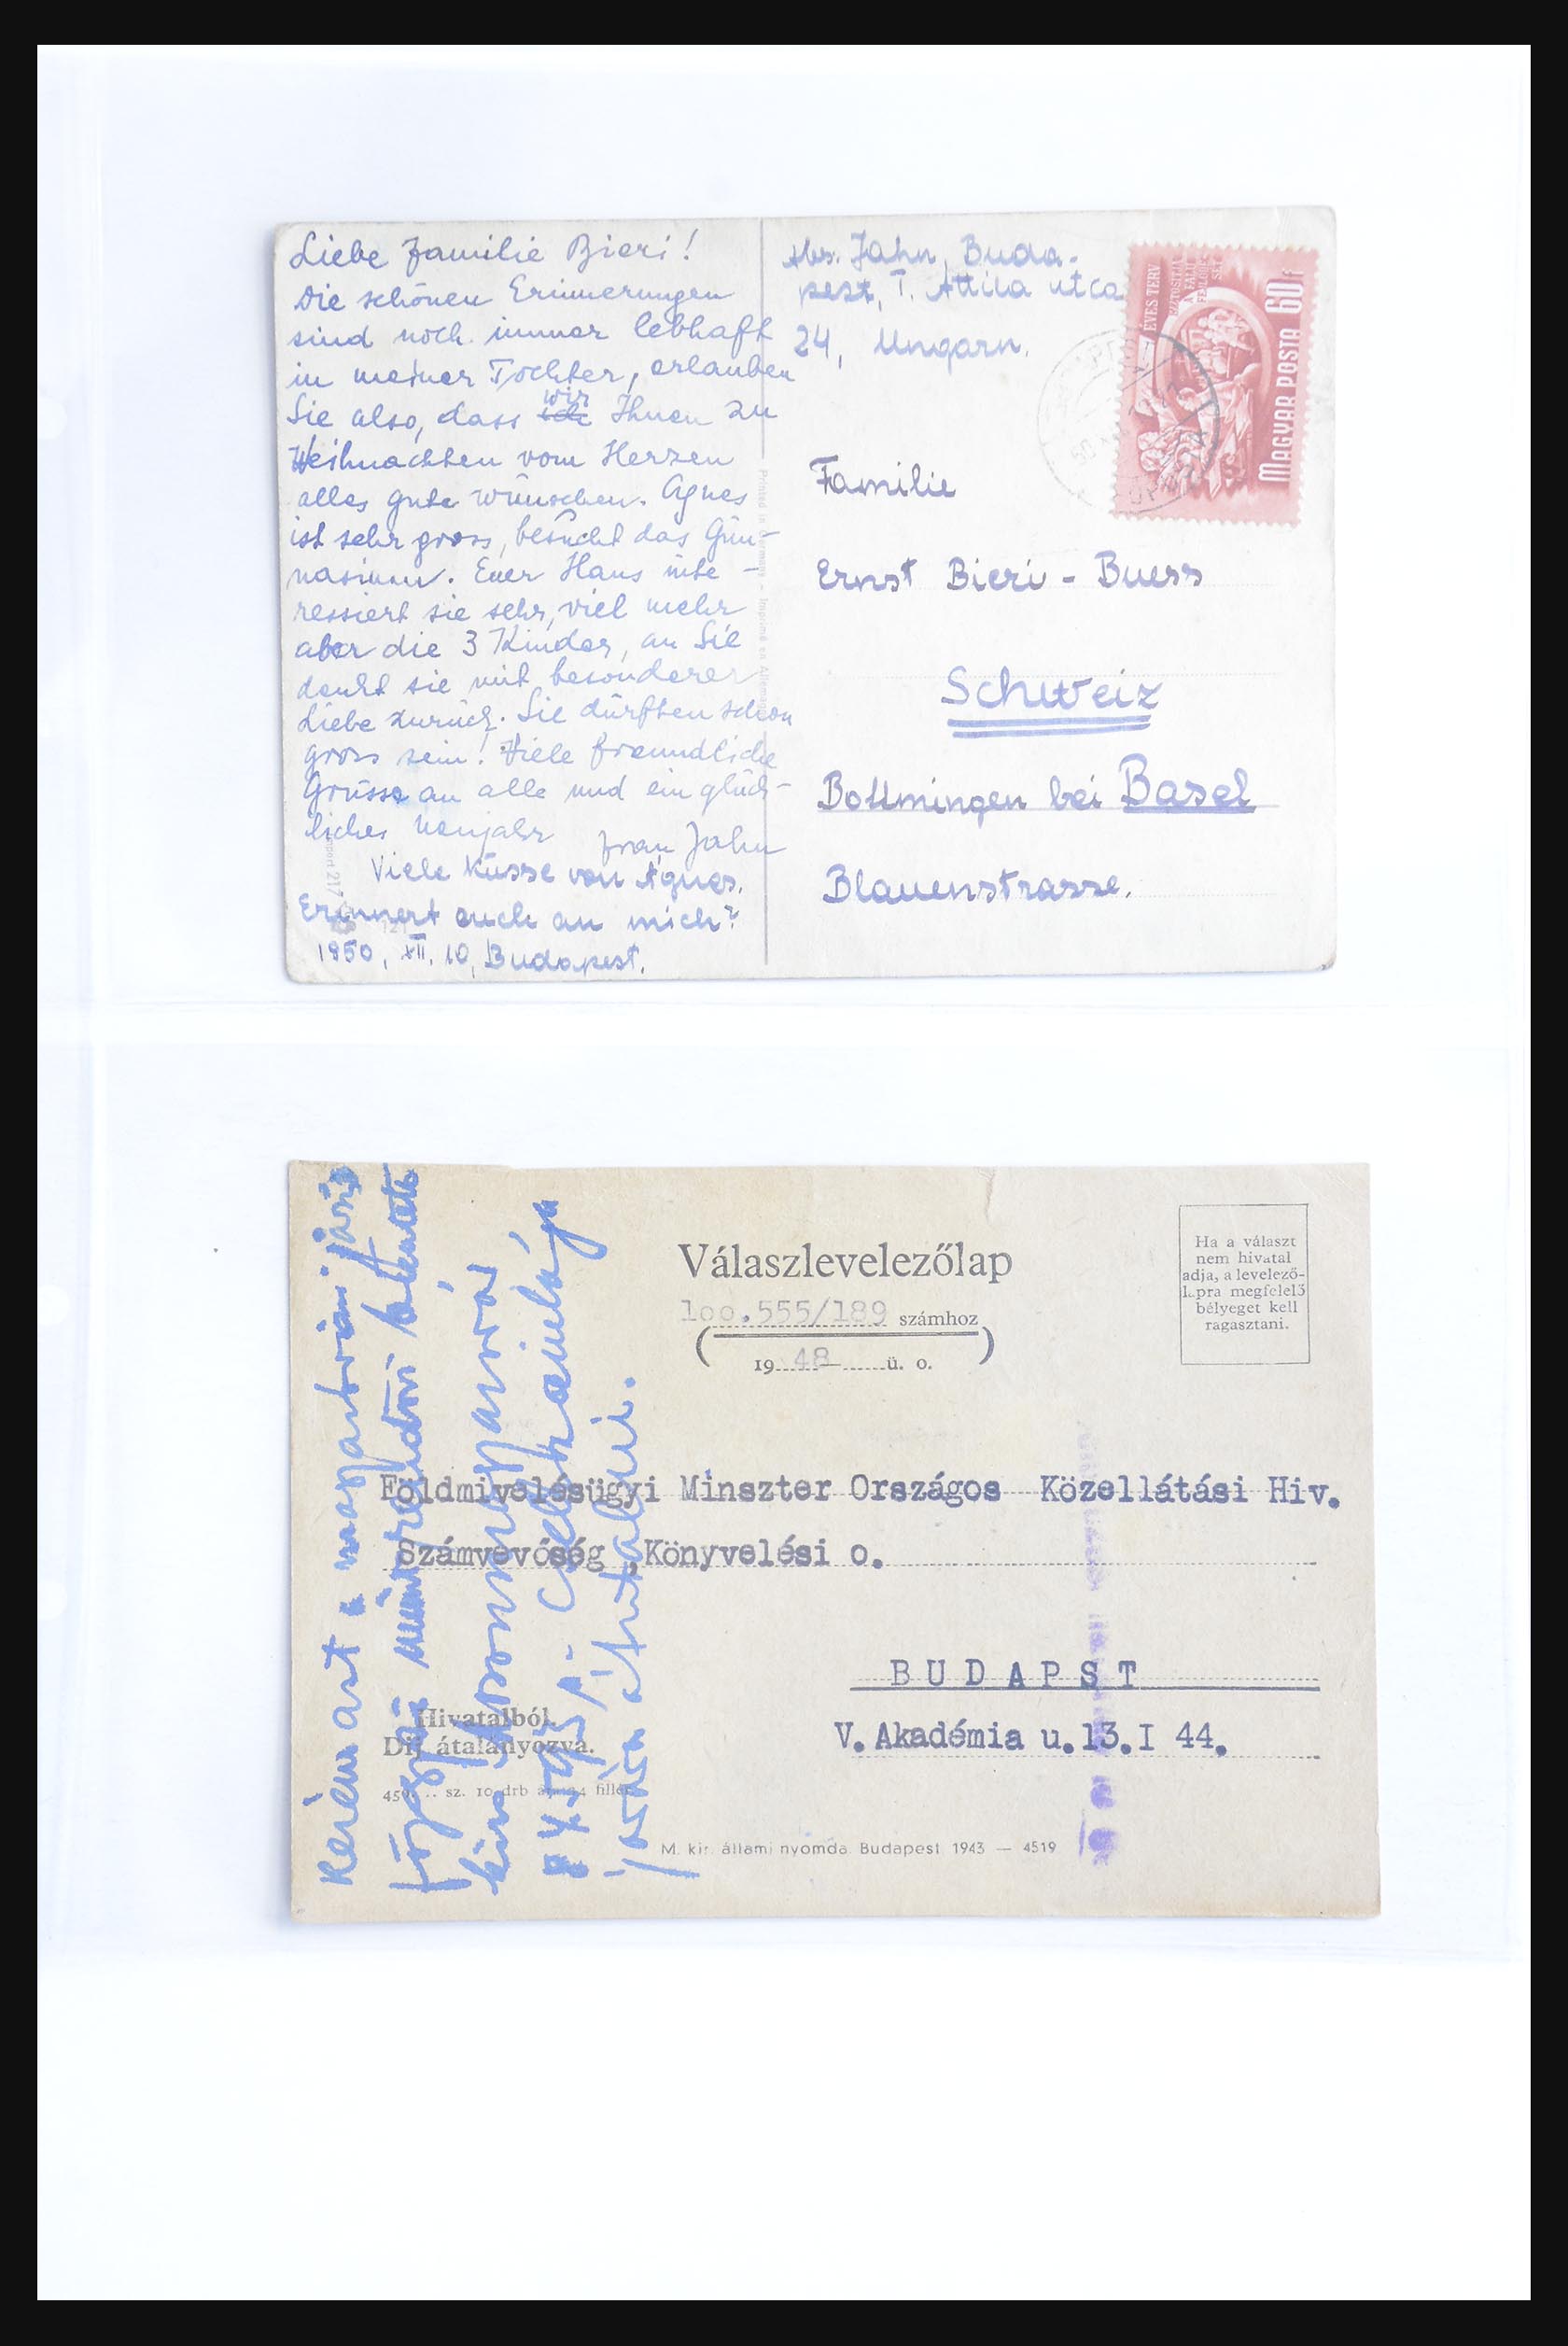 Liebe Familie Bieri!
Die schönen Erinnerungen
sind noch immer lebhaft
in meiner Tochter, erlauben
Sie also, dass wir Ihnen zu
Weihnachten vom Herzen
alles gute wünschen. Agnes
ist sehr gross, besucht das Güm-
nasium. Euer Haus inte-
ressiert sie sehr, viel mehr
aber die 3 Kinder, an Sie
denkt sie mit besonderer
Liebe zurück. Sie dürften schon
gross sein! Viele freundliche
Grüsse an alle und ein glück-
liches Neujahr Frau Jahn
Viele Küsse von Ágnes.
Erinnert euch an mich?
1950, XII. 10, Budapest.
Printed in Germany - Imprimé en Allemagne
Abs. Jahn, Buda-
pest, I. Attila utca
24, Ungarn.
ÉVES TERV
MAGYAR POSTA 60f
Familie
Ernst Bieri - Buess
Schweiz
Bottmingen bei Basel
Blauenstrasse.
Válaszlevelezőlap
1oo.555/189 számhoz
1948 ü. o.
Ha a választ
nem hivatal
adja, a levelező-
lapra megfelelő
bélyeget kell
ragasztani.
Földmivelésügyi Minszter Országos Közellátási Hiv.
Számvevőség ,Könyvelési o.
B U D A P S T
V. Akadémia u.13.I 44.
Hivatalból.
Díj átalányozva.
sz. 10 drb
fillér
M. kir. állami nyomda. Budapest 1943 — 4519
Kérem azt a magyaróvári
főjegyző
Mosonmagyaróvár
számlája
javára átutalni.